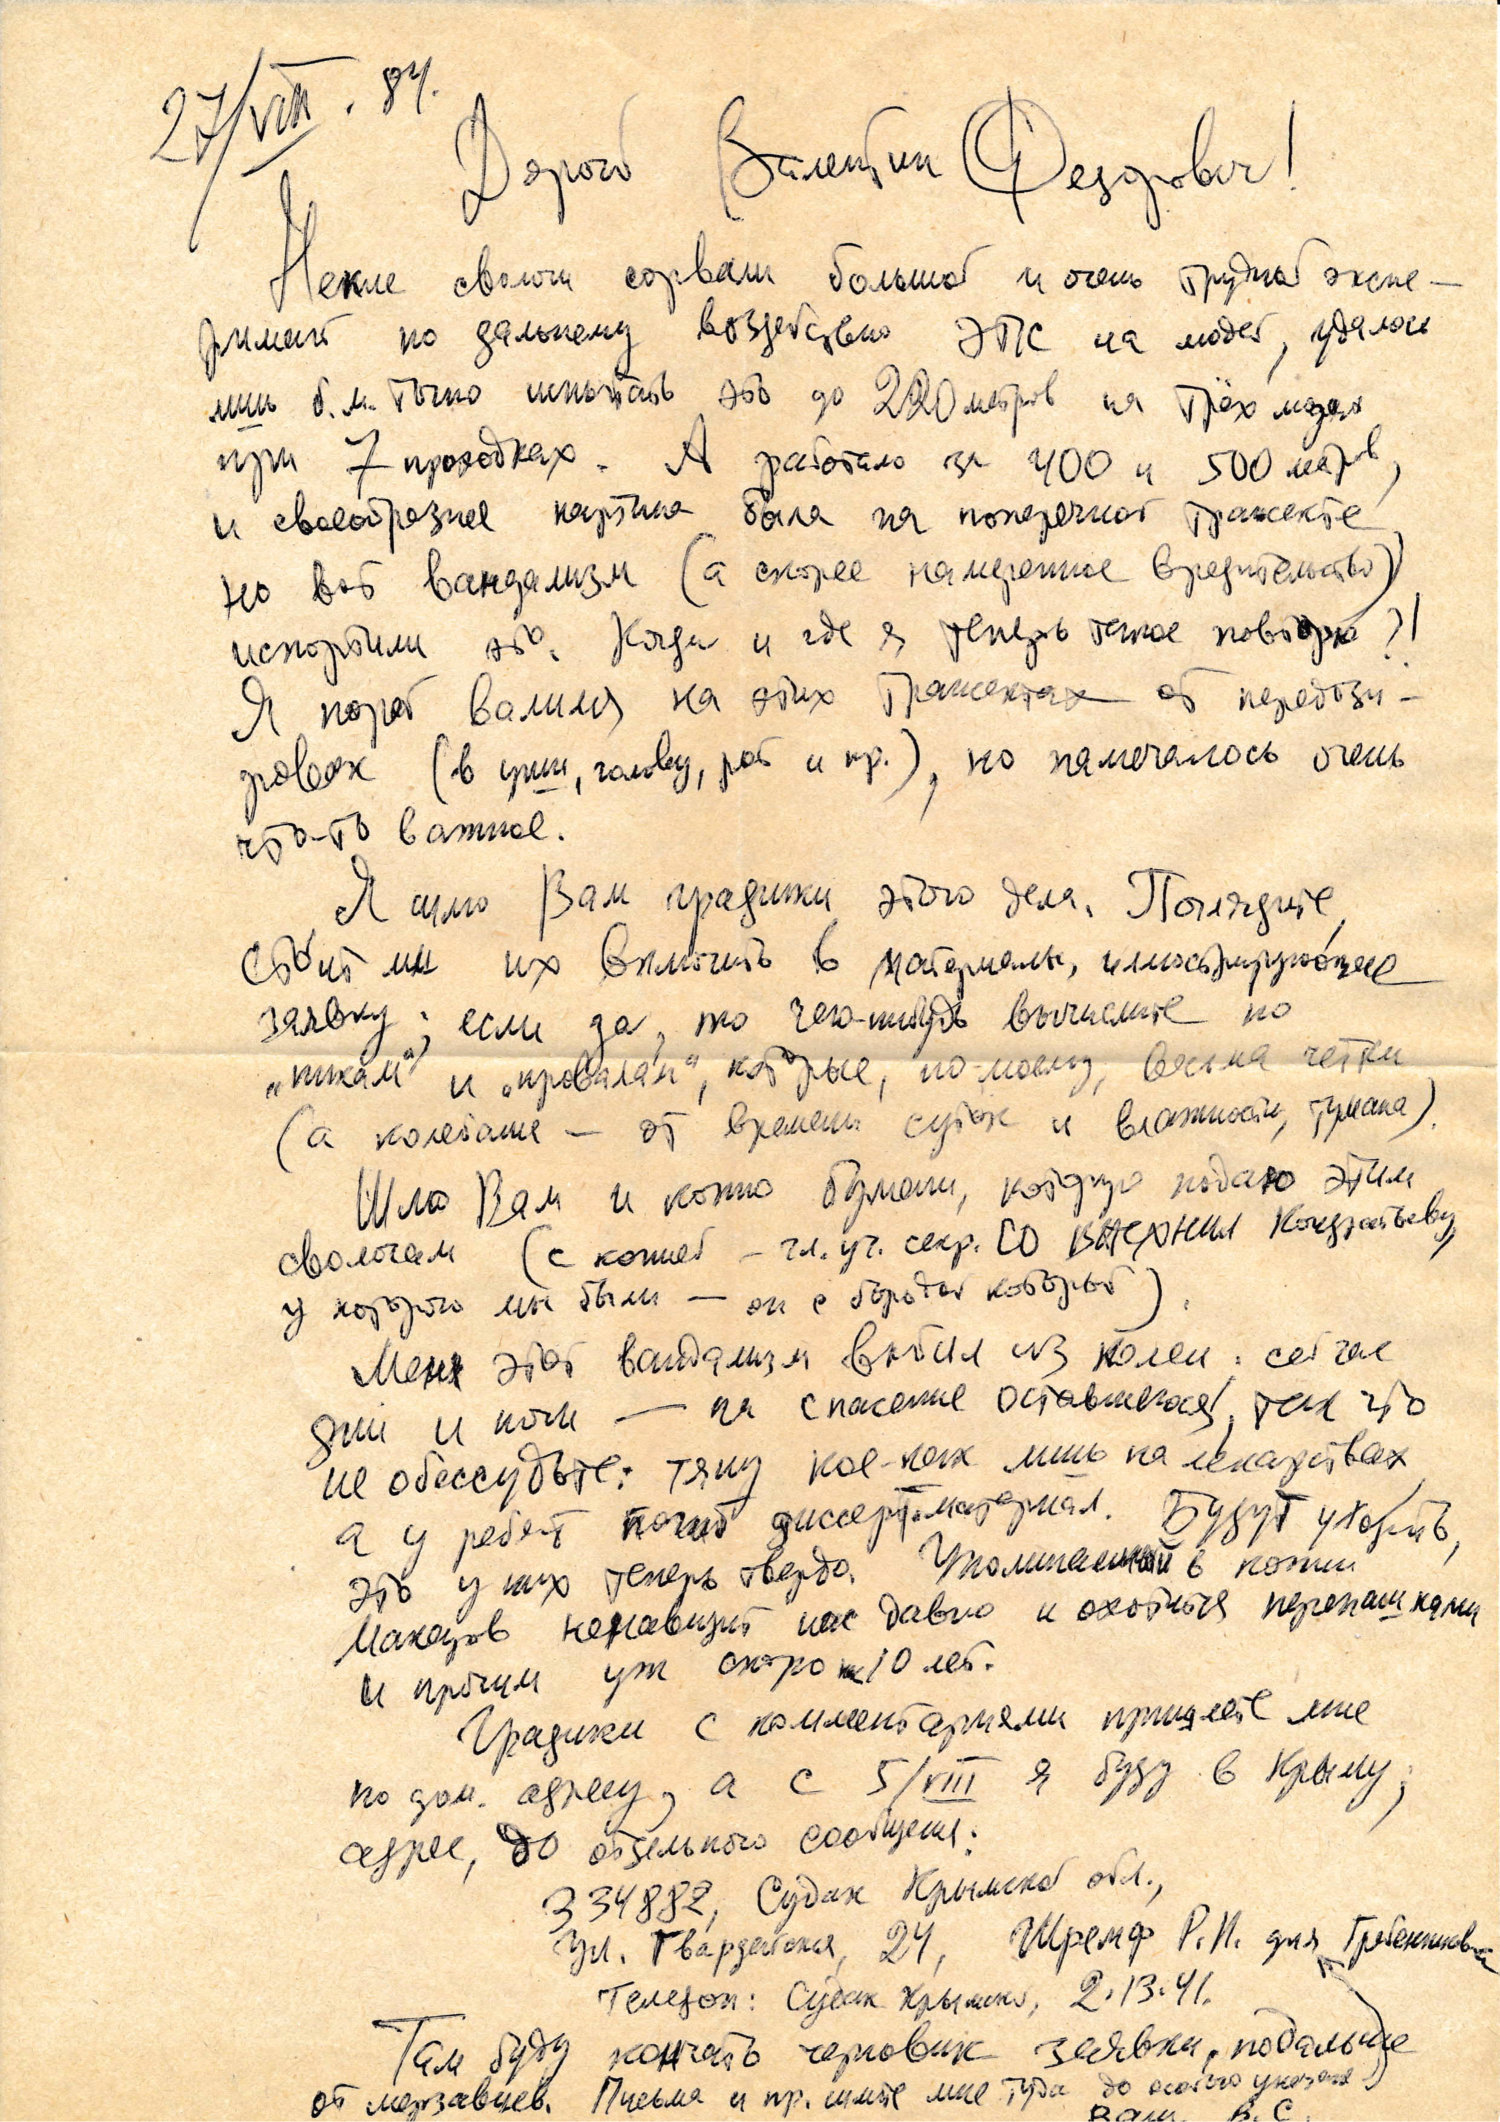 27/VIII. 84.
Дорогой Валентин Фёдорович!
Некие сволочи сорвали большой и очень трудный экспе-
римент по дальнему воздействию ЭПС на людей, удалось
лишь б.м. точно испытать это до 220 метров на трёх людях
при 7 проходках. А работало за 400 и 500 метров,
и своеобразная картина была на поперечной трансекте,
но вот вандализм (а скорее намеренное вредительство)
испортили это. Когда и где я теперь такое повторю?!
Я порой валился на этих трансектах от передози-
ровок (в уши, голову, рот и пр.), но намечалось очень
что-то важное.
Я шлю Вам графики этого дела. Поглядите,
стоит ли их включить в материалы, иллюстрирующие
заявку; если да, то чего-нибудь вычислите по
„пикам" и „провалам", которые, по-моему, весьма чётки
(а колебания — от времени суток и влажности, тумана).
Шлю Вам и копию бумаги, которую подаю этим
сволочам (с копией — гл. уч. секр. СО ВАСХНИЛ Кондратьеву,
у которого мы были — он с бородой который).
Меня этот вандализм выбил из колеи: сейчас
дни и ночи — на спасение оставшегося, так что
не обессудьте: тяну кое-как лишь на лекарствах,
а у ребят погиб диссерт. материал. Будут уходить,
это у них теперь твёрдо. Упоминаемый в копии
Макаров ненавидит нас давно и охотится перепашками
и прочим уж скоро 10 лет.
Графики с комментариями пришлёте мне
по дом. адресу, а с 5/VIII я буду в Крыму;
адрес, до отдельного сообщения:
334882, Судак Крымской обл.,
ул. Гвардейская, 24, Шремф Р.И. для Гребенникова
Телефон: Судак Крымской, 2.13.41.
Там буду кончать черновик заявки, подальше
от мерзавцев. Письма и пр. шлите мне туда до особого указания)
Ваш В.С.